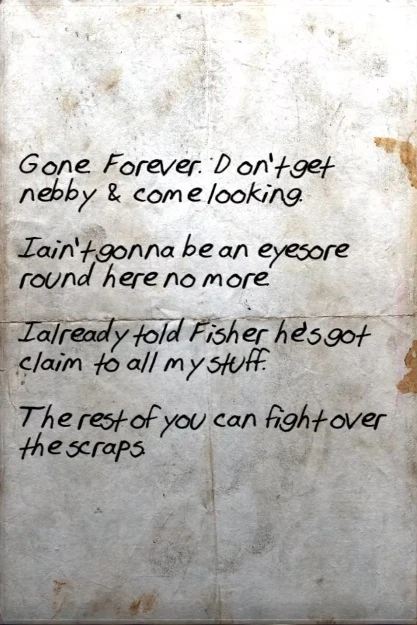 Gone Forever. Don't get
nebby & come looking.
I ain't gonna be an eyesore
round here no more
I already told Fisher he's got
claim to all my stuff.
The rest of you can fight over
the scraps.